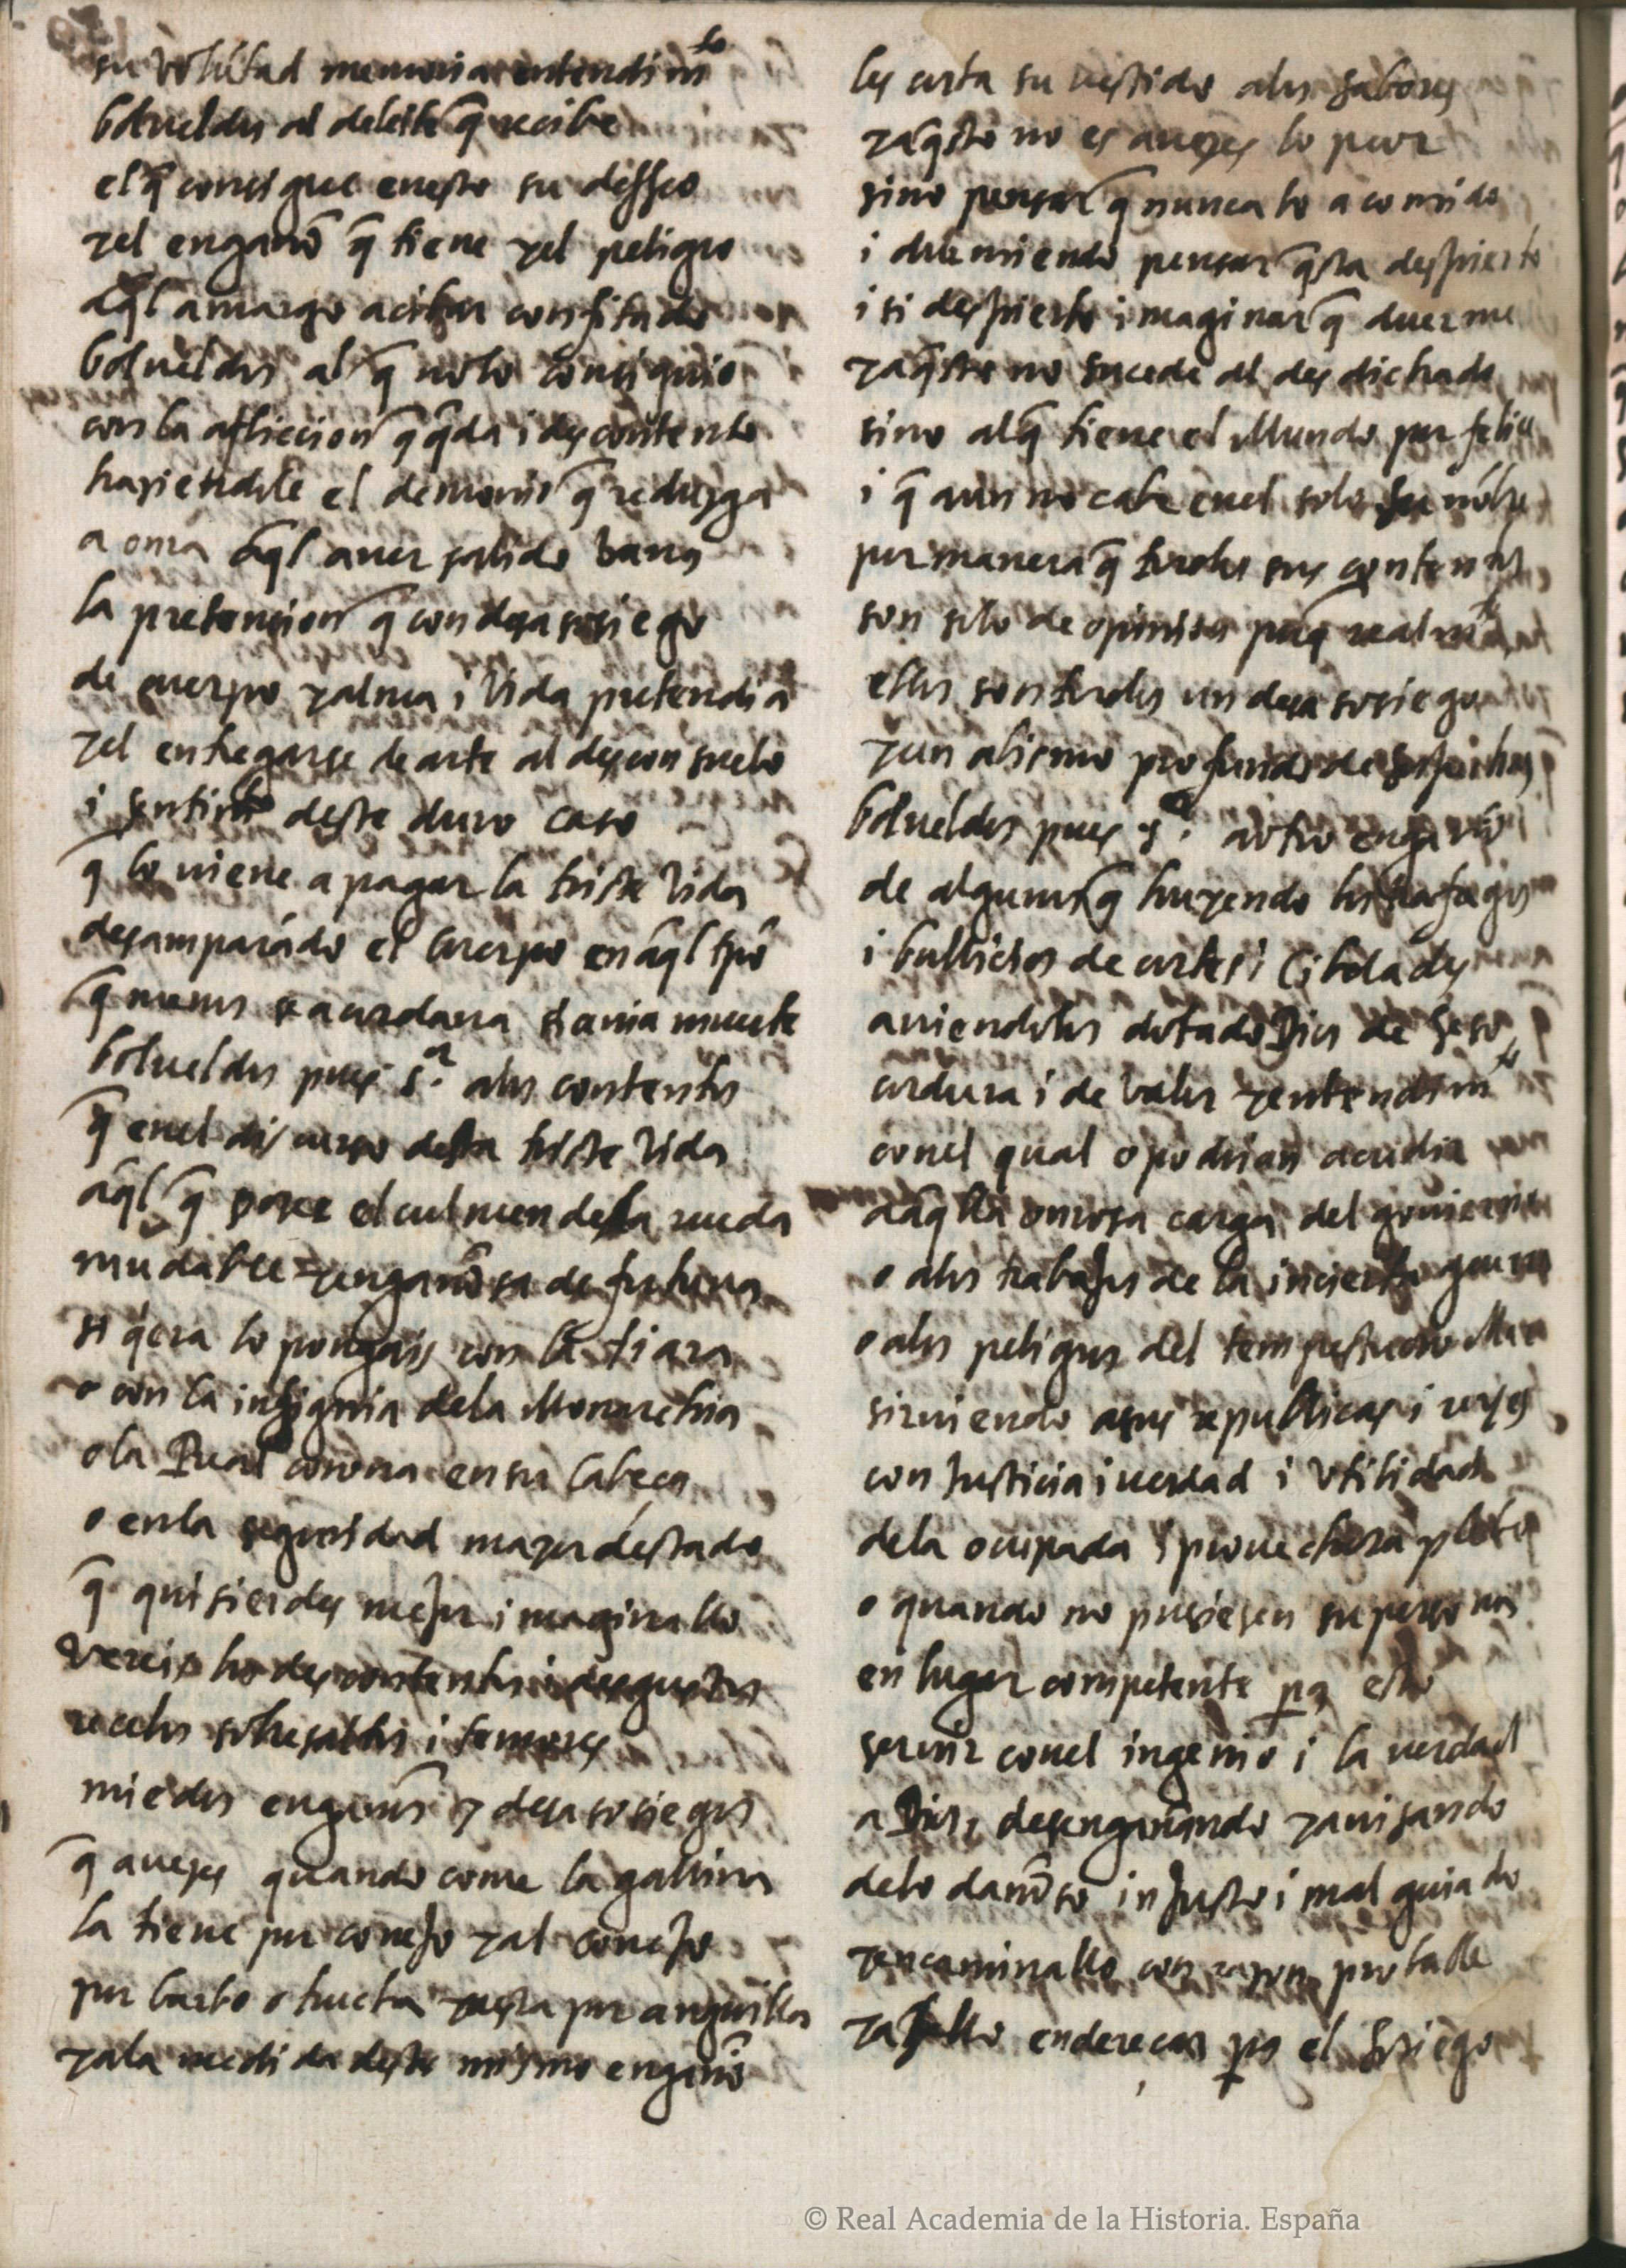 su volūtad memoria entendimto
bolueldos al deleite q̃ recibe
el q̃ consigue enesto su desseo
y el engaño q̃ tiene y el peligro
aq̃l amargo acibar confitado
bolueldos al q̃ nolo consiguio
con la afliccion q̃ q̃da i descontento
haziendole el demonio q̃ reduzga
a onra aq̃l auer salido vana
la pretension q̃ con desasosiego
de cuerpo y alma i vida pretendia
y el entregarse de arte al desconsuelo
i sentimto deste duro caso
q̃ lo uiene a pagar la triste vida
desamparādo el cuerpo en aq̃l tpō
q̃ menos se acordaua si auia muerte
bolueldos pues sr. alos contentos
q̃ enel discurso desta triste vida
aq̃l q̃ posee el culmen dela rueda
mudable y engañosa de fortuna
si q̃era lo pongais con la tiara
o con la insignia dela Monarchia
o la Real corona en su cabeça
o en la seguridad mayor destado
q̃ quisierdes mejor imaginallo
vereislo descontentos i desgustos
recelos sobresaltos i temores
miedos engaños y desasosiegos
q̃ auezes quando come la gallina
la tiene por conejo y al conejo
por barbo o trucha y esta por anguilla
y ala medida deste mismo engaño
les corta su uestido alos sabores
y aq̃sto no es auezes lo peor
sino pensar q̃ nunca lo a comido
i durmiendo pensar q̃sta despierto
i si despierto imaginar q̃ duerme
y aq̃sto no sucede al desdichado
sino alq̃ tiene el Mundo por felice
i q̃ aun no cabe enel solo su nōbre
por manera q̃ todos sus contentos
son solo de opinion puesq̃ realmte
ellos son todos un desasosiego
y un abismo profundo de sospechas
bolueldos pues sr. aotro engaño
de algunos q̃ huyendo los trafagos
i bullicios de cortes i Cibdades
auiendolos dotado Dios de seso
cordura i de valor y entendimto
conel qual o podrian acudir
aaq̃lla onrosa carga del gouierno
o alos trabajos de la incierta guerra
o alos peligros del tempestuoso Mar
siruiendo asus republicas i reyes
con Justicia i uerdad i vtilidad
dela ocupada i prouechosa
o quando no pusiesen su persona
en lugar competente pa esto
seruir conel ingenio i la uerdad
a Dios, desengañando y auisando
delo dañoso injusto i mal guiado
y encaminallo con razon probable
y aello endereçar pa el sosiego
© Real Academia de la Historia. España